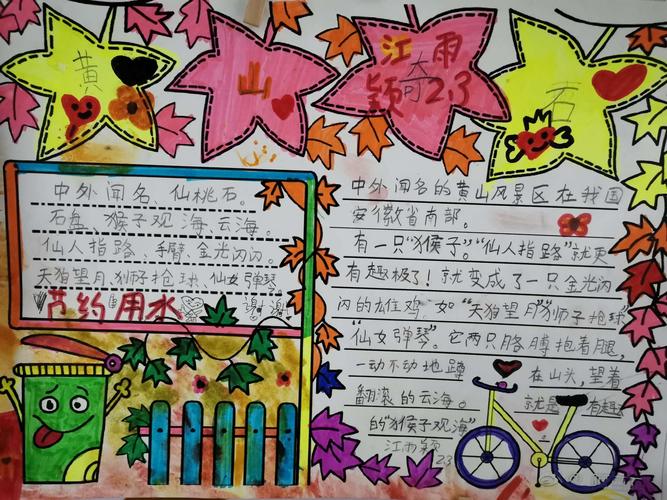 黄
山
奇
石
江雨
颖2.3
中外闻名、仙桃石。
石盘、猴子观海、云海。
仙人指路、手臂、金光闪闪。
天狗望月、狮子抢球、仙女弹琴。
节约用水
谢谢
中外闻名的黄山风景区在我国
安徽省南部。
有一只“猴子”。“仙人指路”就更
有趣极了！就变成了一只金光闪
闪的雄鸡。如“天狗望月”“狮子抢球”
“仙女弹琴”。它两只胳膊抱着腿，
一动不动地蹲在山头，望着
翻滚的云海。就是有趣
的“猴子观海”
江雨颖
2.3